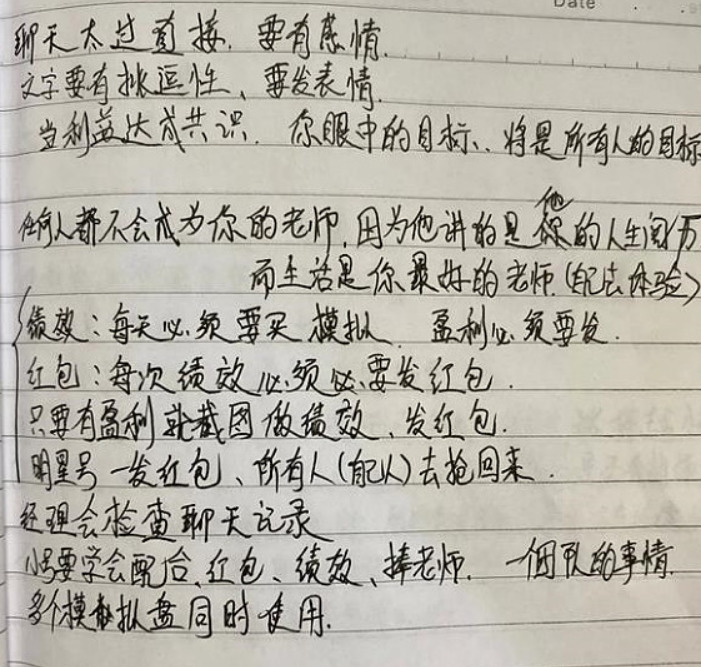 Date
聊天太过直接. 要有感情.
文字要有挑逗性、要发表情.
当利益达成共识. 你眼中的目标.. 将是所有人的目标
任何人都不会成为你的老师, 因为他讲的是他的人生阅历
而生活是你最好的老师.(自己去体验)
绩效：每天必须要买模拟. 盈利必须要发.
红包：每次绩效必须必要发红包.
只要有盈利就截图做绩效、发红包.
明星号一发红包、所有人(自己人)去抢回来.
经理会检查聊天记录
小号要学会配合、红包、绩效、捧老师. 一个团队的事情.
多个模拟盘同时使用.